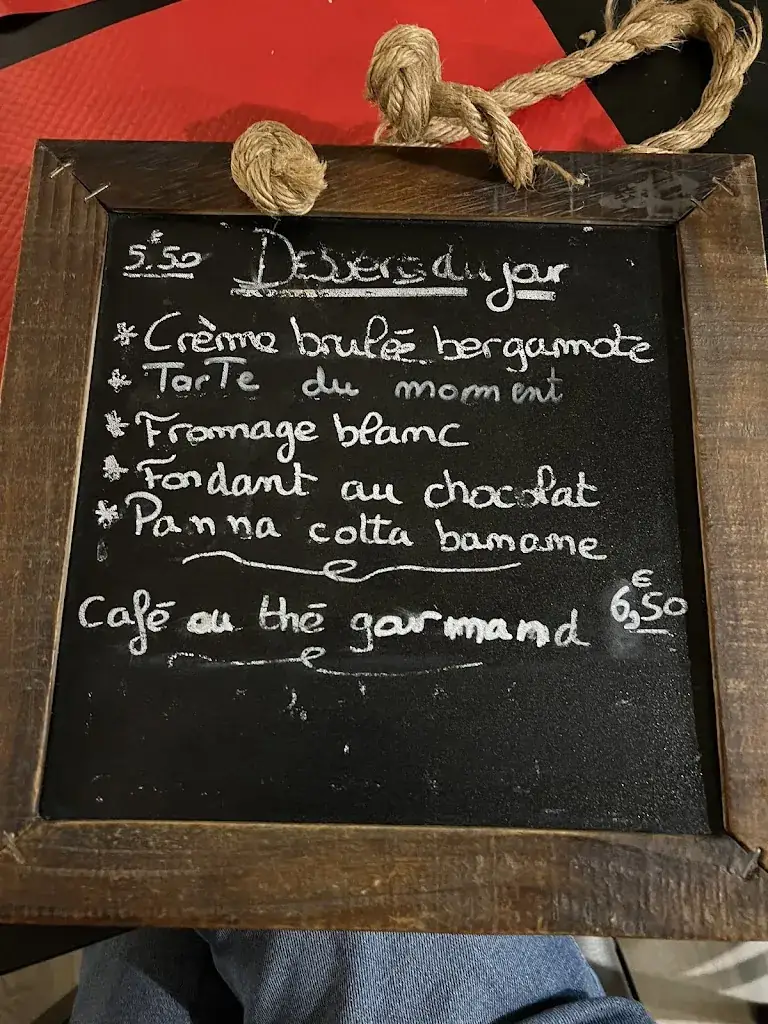 5.50 € Desserts du jour
* Crème brulée bergamote
* Tarte du moment
* Fromage blanc
* Fondant au chocolat
* Panna cotta banane
Café ou thé gourmand 6,50 €